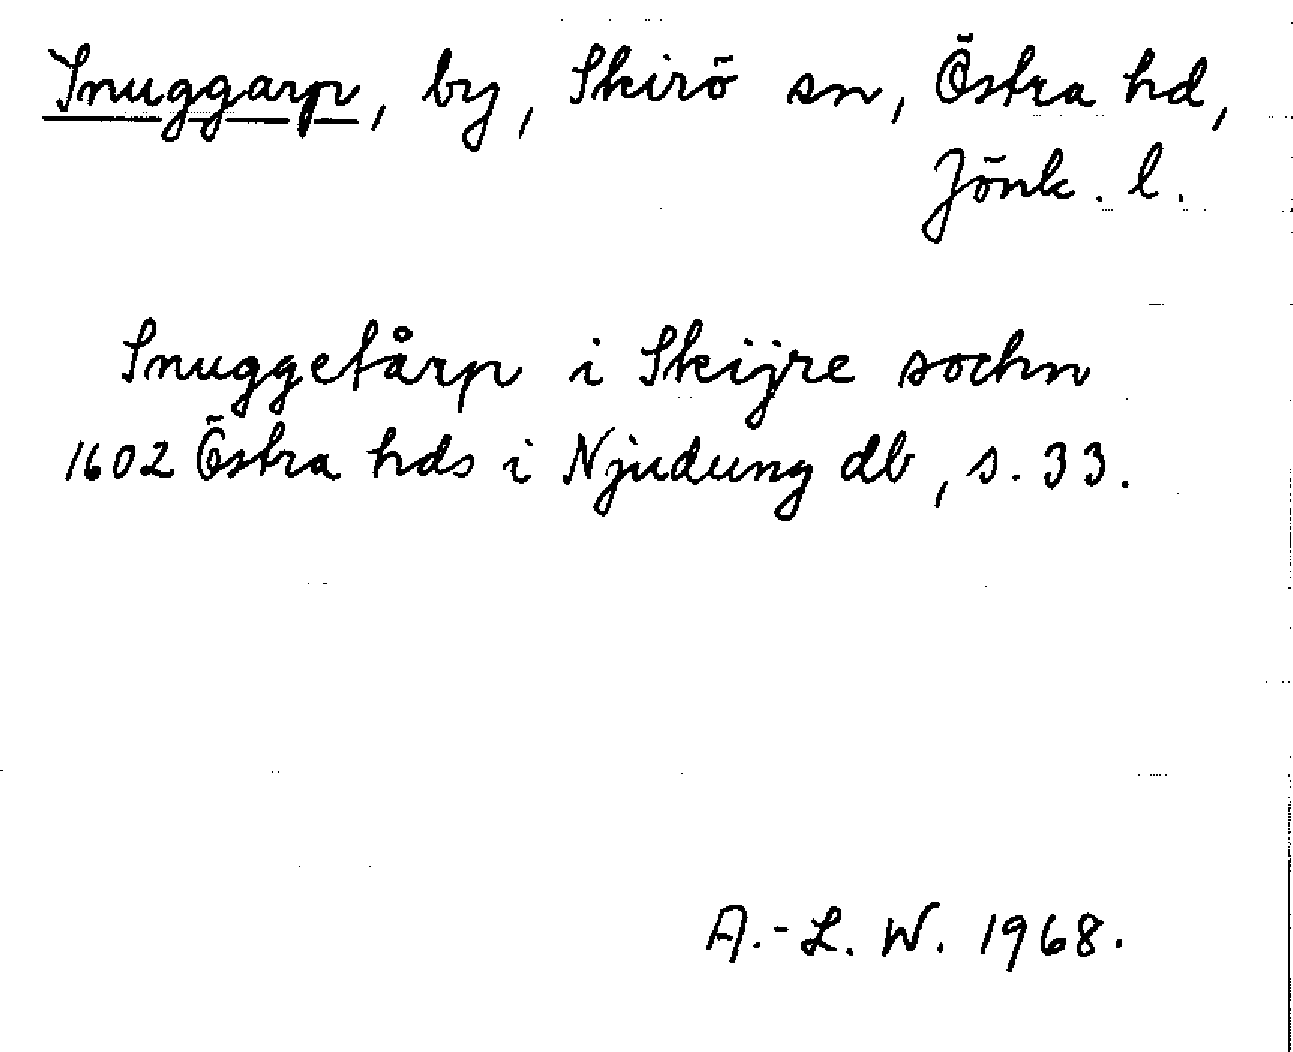 Snuggarp, by, Skirö sn, Östra hd,
Jönk. l.
Snuggetårp i Skijre sochn
1602 Östra hds i Njudung db, s. 33.
A.-L. W. 1968.